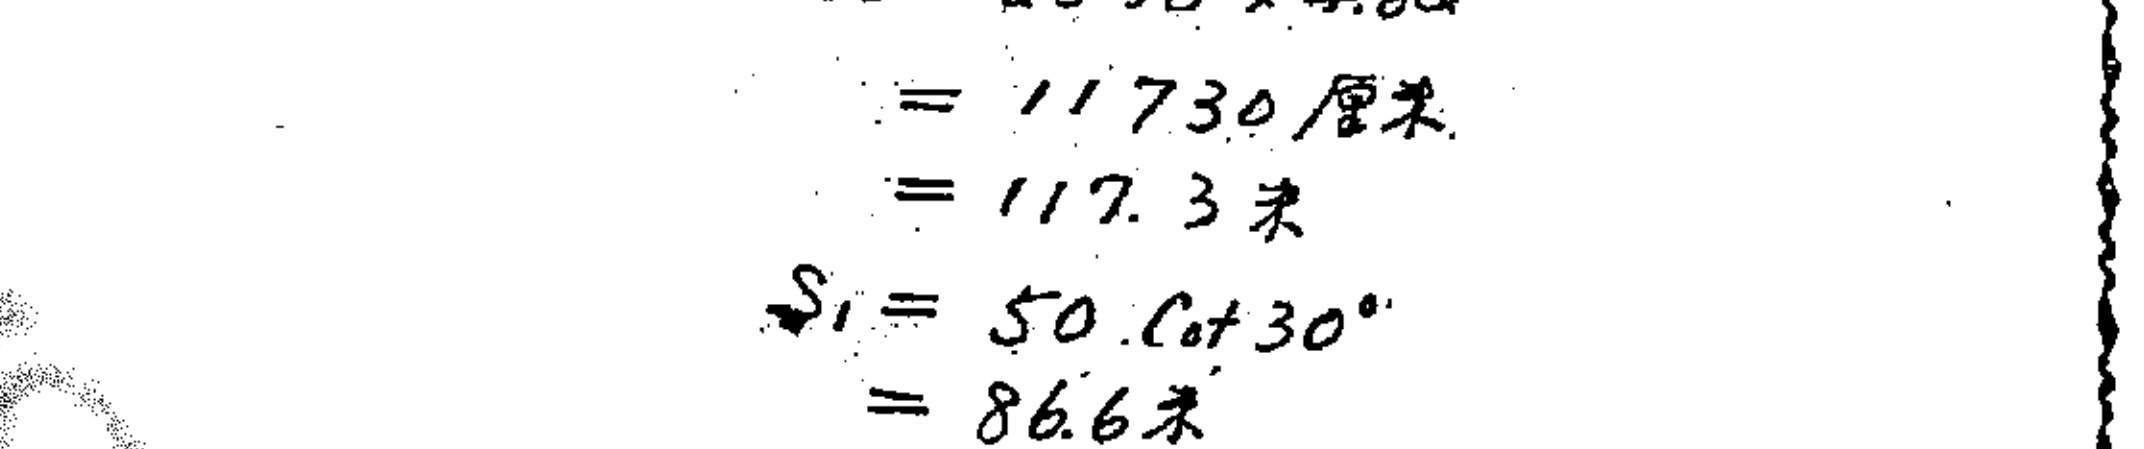 = 11730厘米
= 117.3米
S₁ = 50.Cot30°
= 86.6米